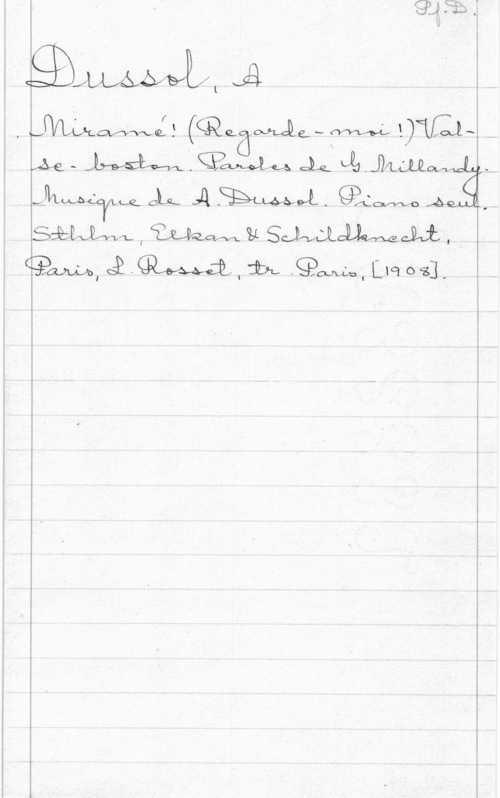 Pf. D.
Dussol, A
Miramé! (Regarde-moi!) Val-
se-boston. Paroles de G Millandy.
Musique de A. Dussol. Piano seul.
Sthlm, Elkan & Schildknecht,
Paris, L. Rosset, tr. Paris, [1908].